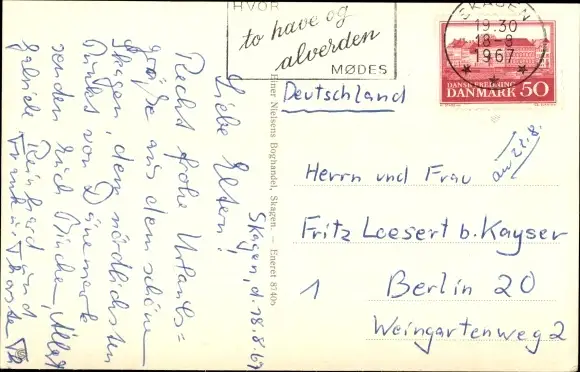 HVOR
to have og
alverden
MØDES
SKAGEN
19.30
18-8
1967
DANSK FREDNING
DANMARK 50
Skagen, d. 18.8.67
Liebe Eltern!
Recht frohe Urlaubs=
grüße aus dem schönen
Skagen, dem nördlichsten
Punkt von Dänemark
senden Euch
Gabriele Reinhard und
Einer Nielsens Boghandel, Skagen. — Eneret 87406
Deutschland
an 21.8.
Herrn und Frau
Fritz Loesert b. Kayser
1 Berlin 20
Weingartenweg 2